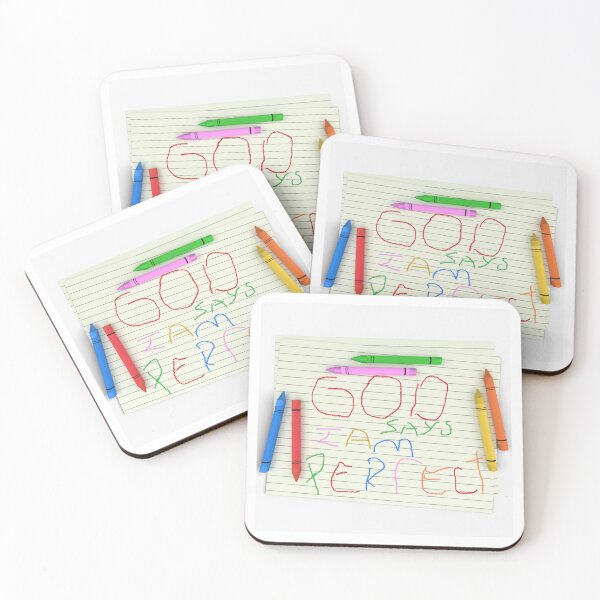 GOD
GOD
SAYS
I AM
GOD
SAYS
I AM
PERF
GOD
SAYS
I AM
PERFECT